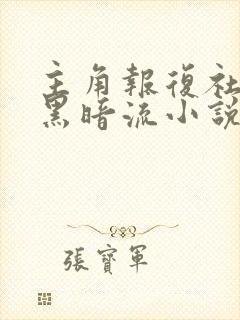 主角報復社
黑暗流小說
張寶軍